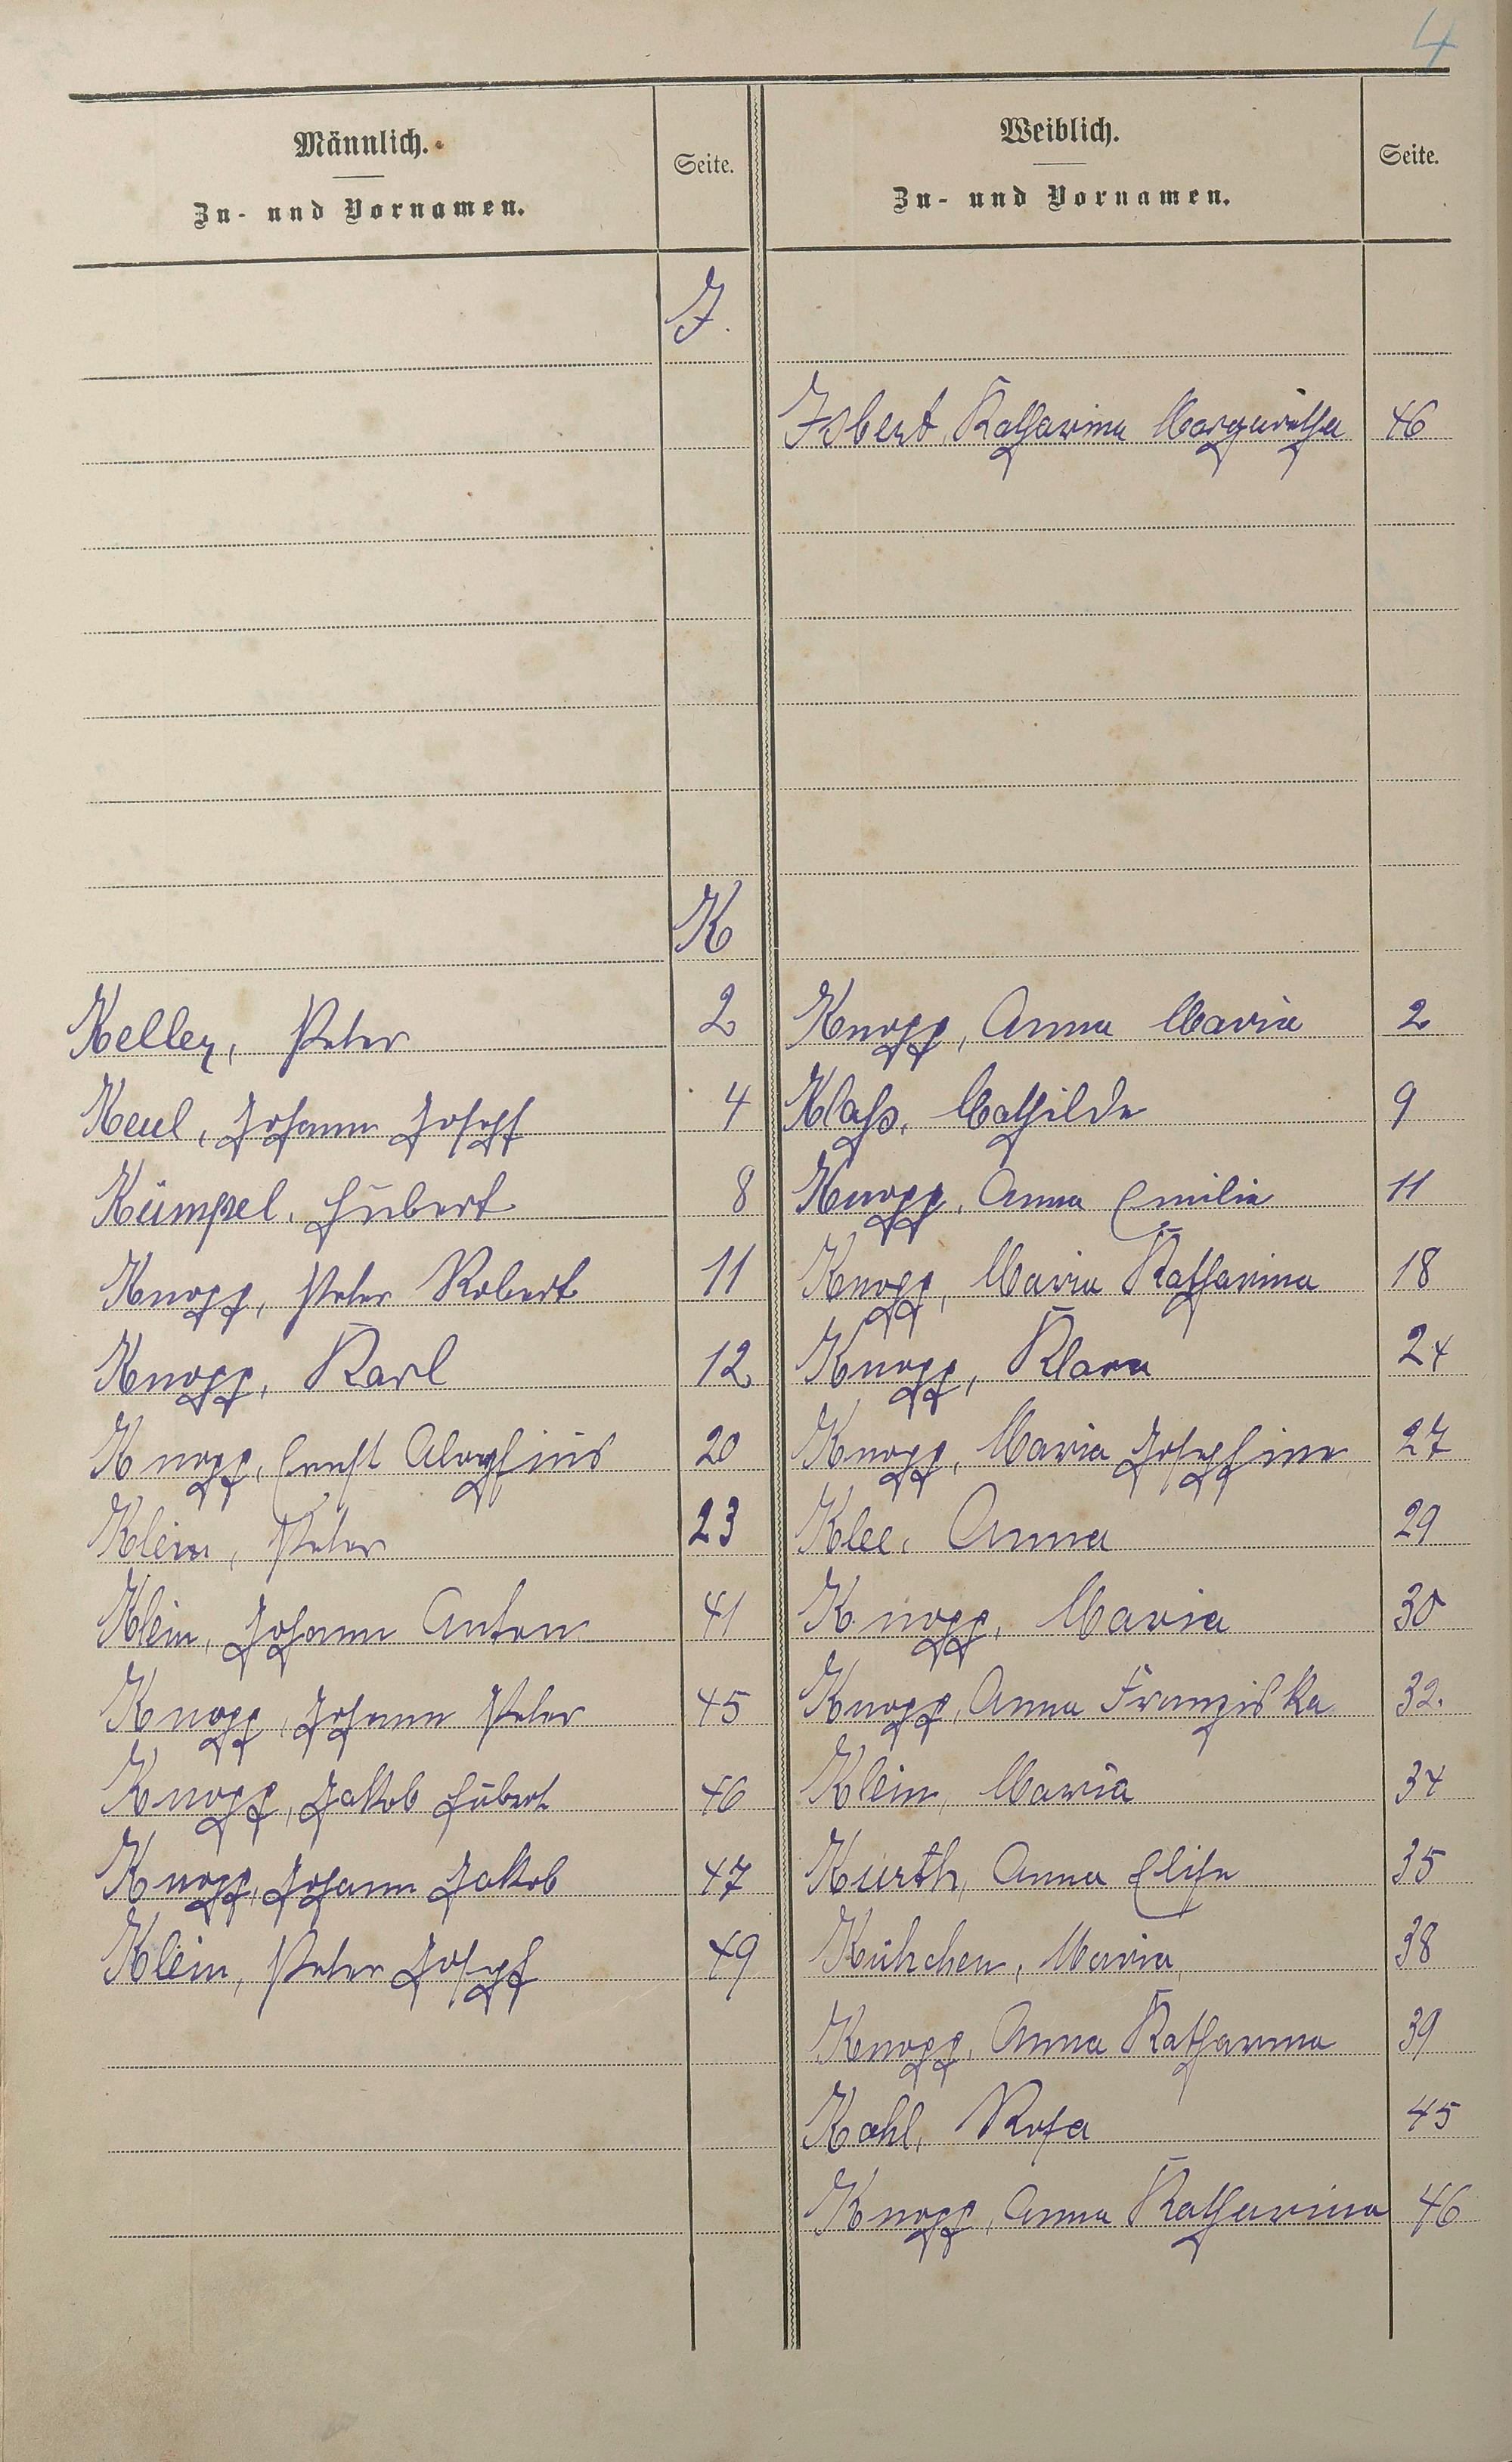 4
Männlich. Seite. Weiblich. Seite.
Zu- und Vornamen. Zu- und Vornamen.
I.
Isbert, Katharina Margaretha 46
K
Keller, Peter 2 Knopp, Anna Maria 2
Keul, Johann Joseph 4 Klaß, Mathilde 9
Kümpel, Hubert 8 Knopp, Anna Emilie 11
Knopp, Peter Robert 11 Knopp, Maria Katharina 18
Knopp, Karl 12 Knopp, Klara 24
Knopp, Ernst Aloysius 20 Knopp, Maria Josephine 27
Klein, Peter 23 Klee, Anna 29
Klein, Johann Anton 41 Knopp, Maria 30
Knopp, Johann Peter 45 Knopp, Anna Franziska 32.
Knopp, Jakob Hubert 46 Klein, Maria 34
Knopp, Johann Jakob 47 Kurth, Anna Elise 35
Klein, Peter Joseph 49 Kühchen, Maria 38
Knopp, Anna Katharina 39
Kahl, Rosa 45
Knopp, Anna Katharina 46